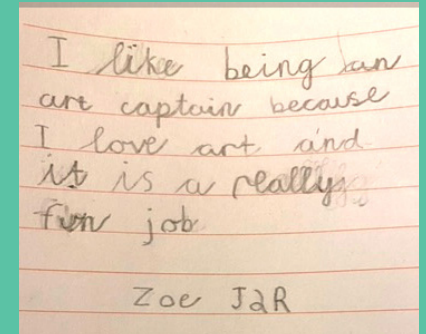 I like being an
art captain because
I love art and
it is a really
fun job
Zoe J2R